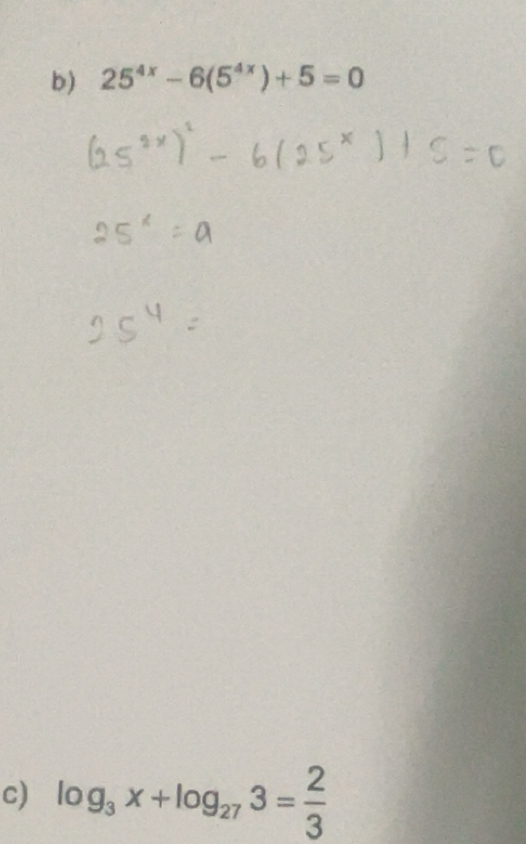 b) 25⁴ˣ − 6(5⁴ˣ) + 5 = 0
(25²ˣ)² − 6(25ˣ) + 5 = 0
25ˣ = a
25⁴ =
c) log₃ x + log₂₇ 3 = 2/3